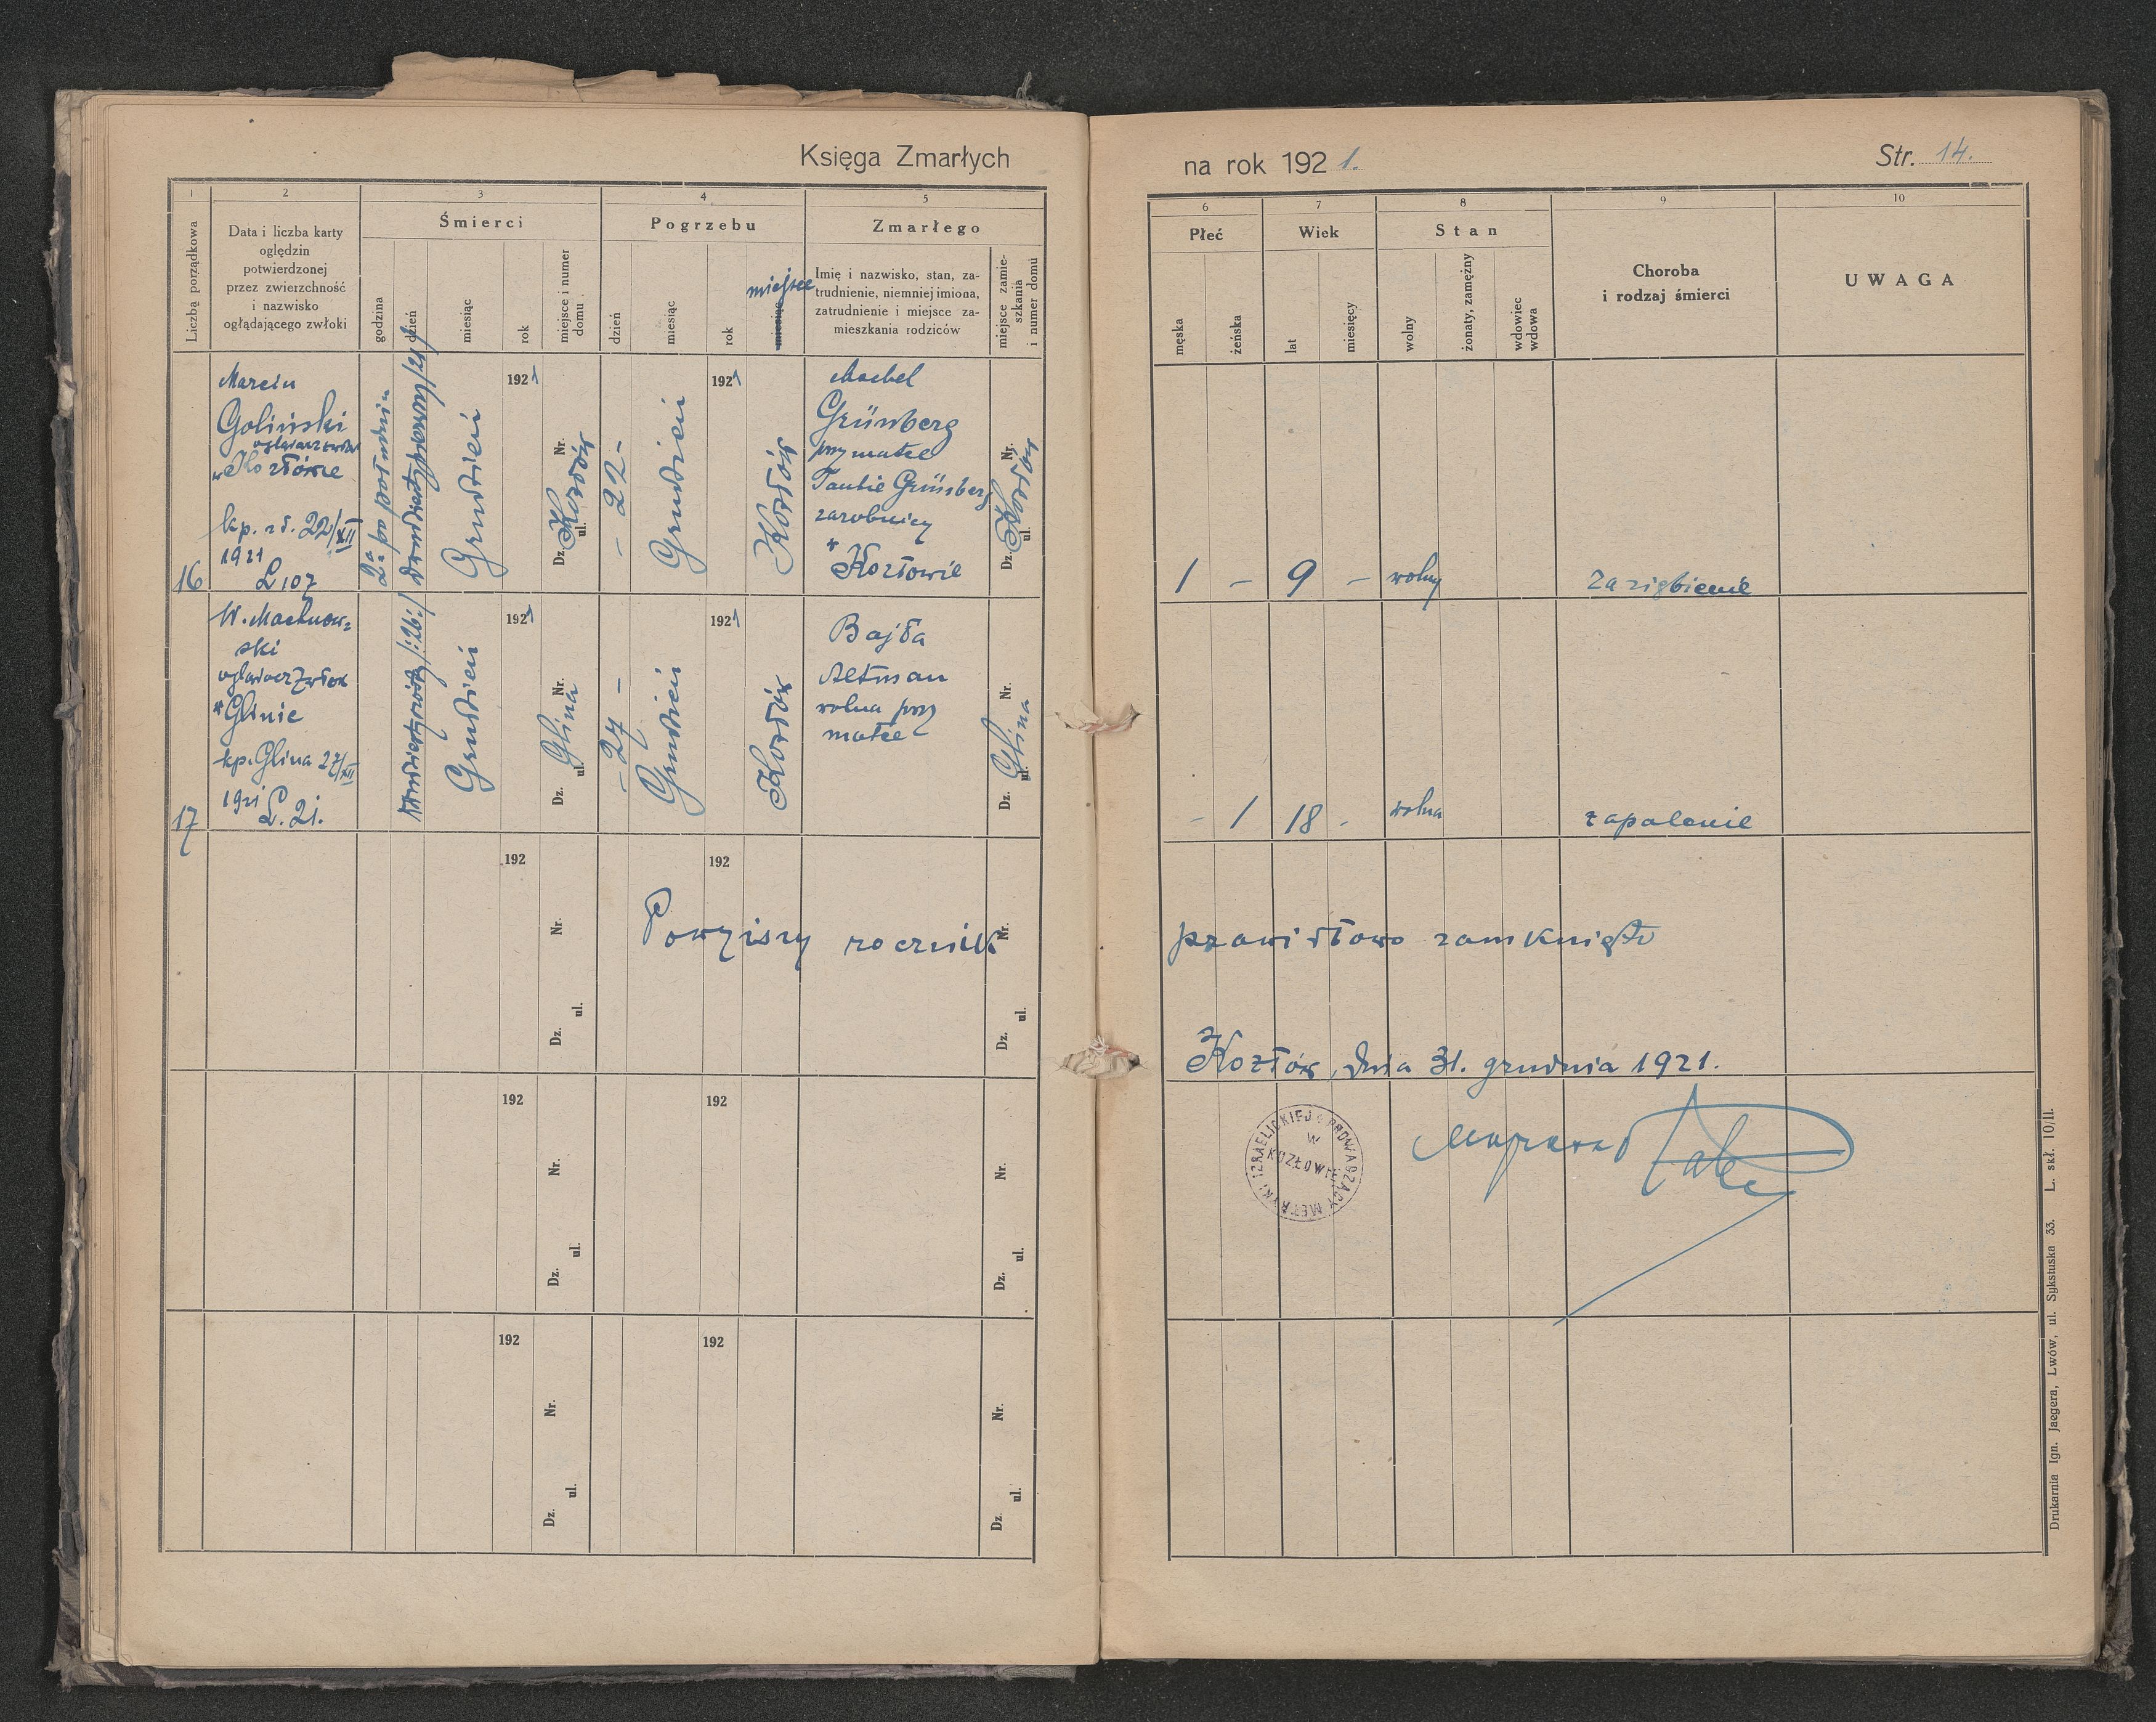 Księga Zmarłych
na rok 1921.
Str. 14.
1
2
3
4
5
Liczba porządkowa
Data i liczba karty
oględzin
potwierdzonej
przez zwierzchność
i nazwisko
oglądającego zwłoki
Śmierci
godzina
dzień
miesiąc
rok
miejsce i numer
domu
Pogrzebu
dzień
miesiąc
rok
miejsce
miesiąc
Zmarłego
Imię i nazwisko, stan, za-
trudnienie, niemniej imiona,
zatrudnienie i miejsce za-
mieszkania rodziców
miejsce zamie-
szkania
i numer domu
6
7
8
9
10
Płeć
męska
żeńska
Wiek
lat
miesięcy
Stan
wolny
żonaty, zamężny
wdowiec
wdowa
Choroba
i rodzaj śmierci
UWAGA
16
Marcin
Goliński
w Kozłowie
kp. zd. 22/XII
1921
L 107
2 popołudniu
Grudzień
1921
Nr.
Kozłów
Dz. ul.
- 22 -
Grudzień
1921
Kozłów
Machel
Grünberg
przy matce
Taubie Grünberg
zarobnicy
w
Kozłowie
Nr.
Kozłów
Dz. ul.
1 - 9 - wolny
zaziębienie
17
W. Machnow-
ski
oglądacz zwłok
w Glinie
kp. Glina 27/XII
1921
L. 21.
dwudziestyszósty /:26:/
Grudzień
1921
Nr.
Glina
Dz. ul.
- 27 -
Grudzień
1921
Kozłów
Bajła
Altman
wolna przy
matce
Nr.
Glina
Dz. ul.
- 1 18 - wolna
zapalenie
192
Nr.
Dz. ul.
192
Nr.
Dz. ul.
Powyższy rocznik prawidłowo zamknięto
Kozłów, dnia 31. grudnia 1921.
192
Nr.
Dz. ul.
192
Nr.
Dz. ul.
PROWADZĄCY METRYKI IZRAELICKIEJ
W
KOZŁOWIE
192
Nr.
Dz. ul.
192
Nr.
Dz. ul.
Drukarnia Ign. Jaegera, Lwów, ul. Sykstuska 33. L. skł. 10/II.